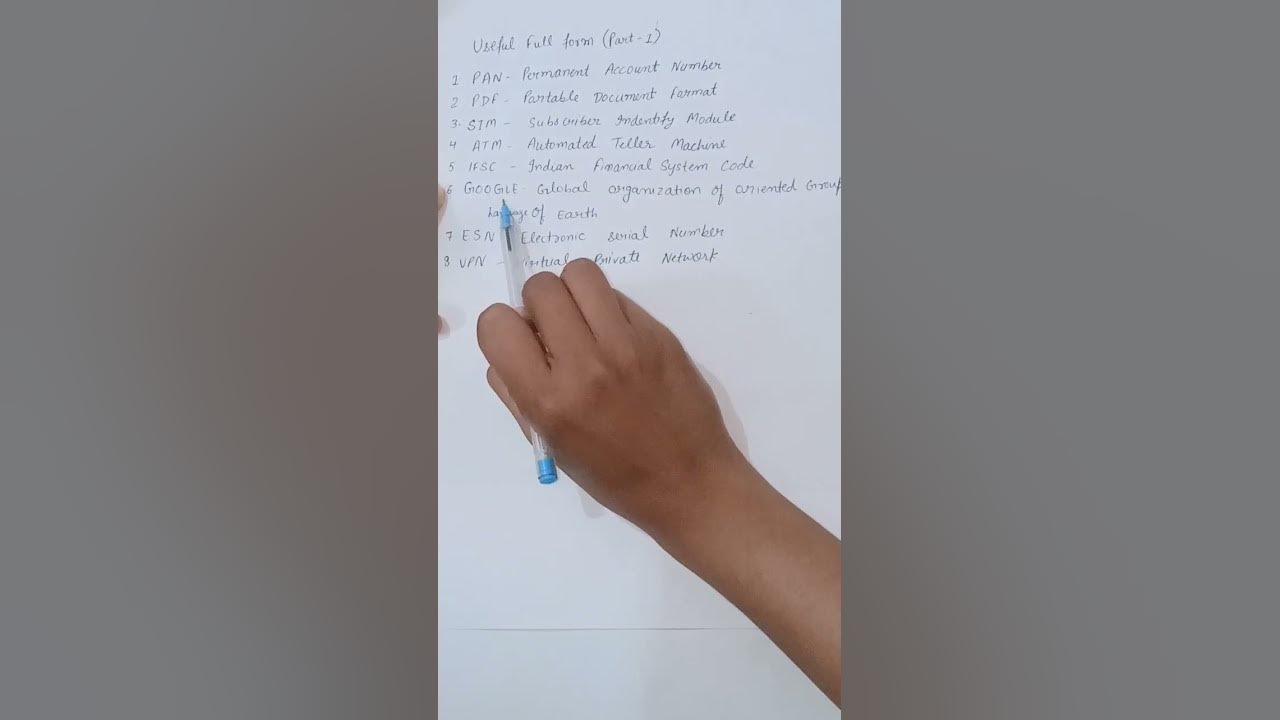 Useful Full form (Part-1)
1 PAN - Permanent Account Number
2 PDF - Partable Document Format
3. SIM - Subscriber Indentify Module
4 ATM - Automated Teller Machine
5 IFSC - Indian Financial System Code
6 GOOGLE - Global organization of oriented Group
of Earth
7 ESN Electronic Serial Number
8 VPN - Virtual Private Network